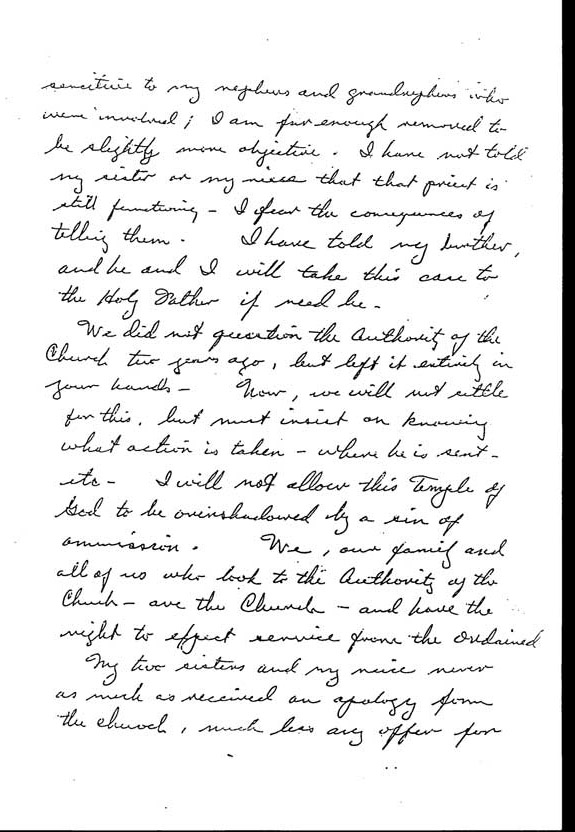 sensitive to my nephews and grandnephews who
were involved; I am far enough removed to
be slightly more objective. I have not told
my sister or my niece that that priest is
still functioning - I fear the consequences of
telling them. I have told my brother,
and he and I will take this case to
the Holy Father if need be -
We did not question the Authority of the
Church two years ago, but left it entirely in
your hands - Now, we will not settle
for this, but must insist on knowing
what action is taken - where he is sent -
etc - I will not allow this Temple of
God to be overshadowed by a sin of
ommission. We, our family and
all of us who look to the Authority of the
Church - are the Church - and have the
right to expect service from the Ordained
My two sisters and my niece never
as much as received an apology from
the church, much less any offer for